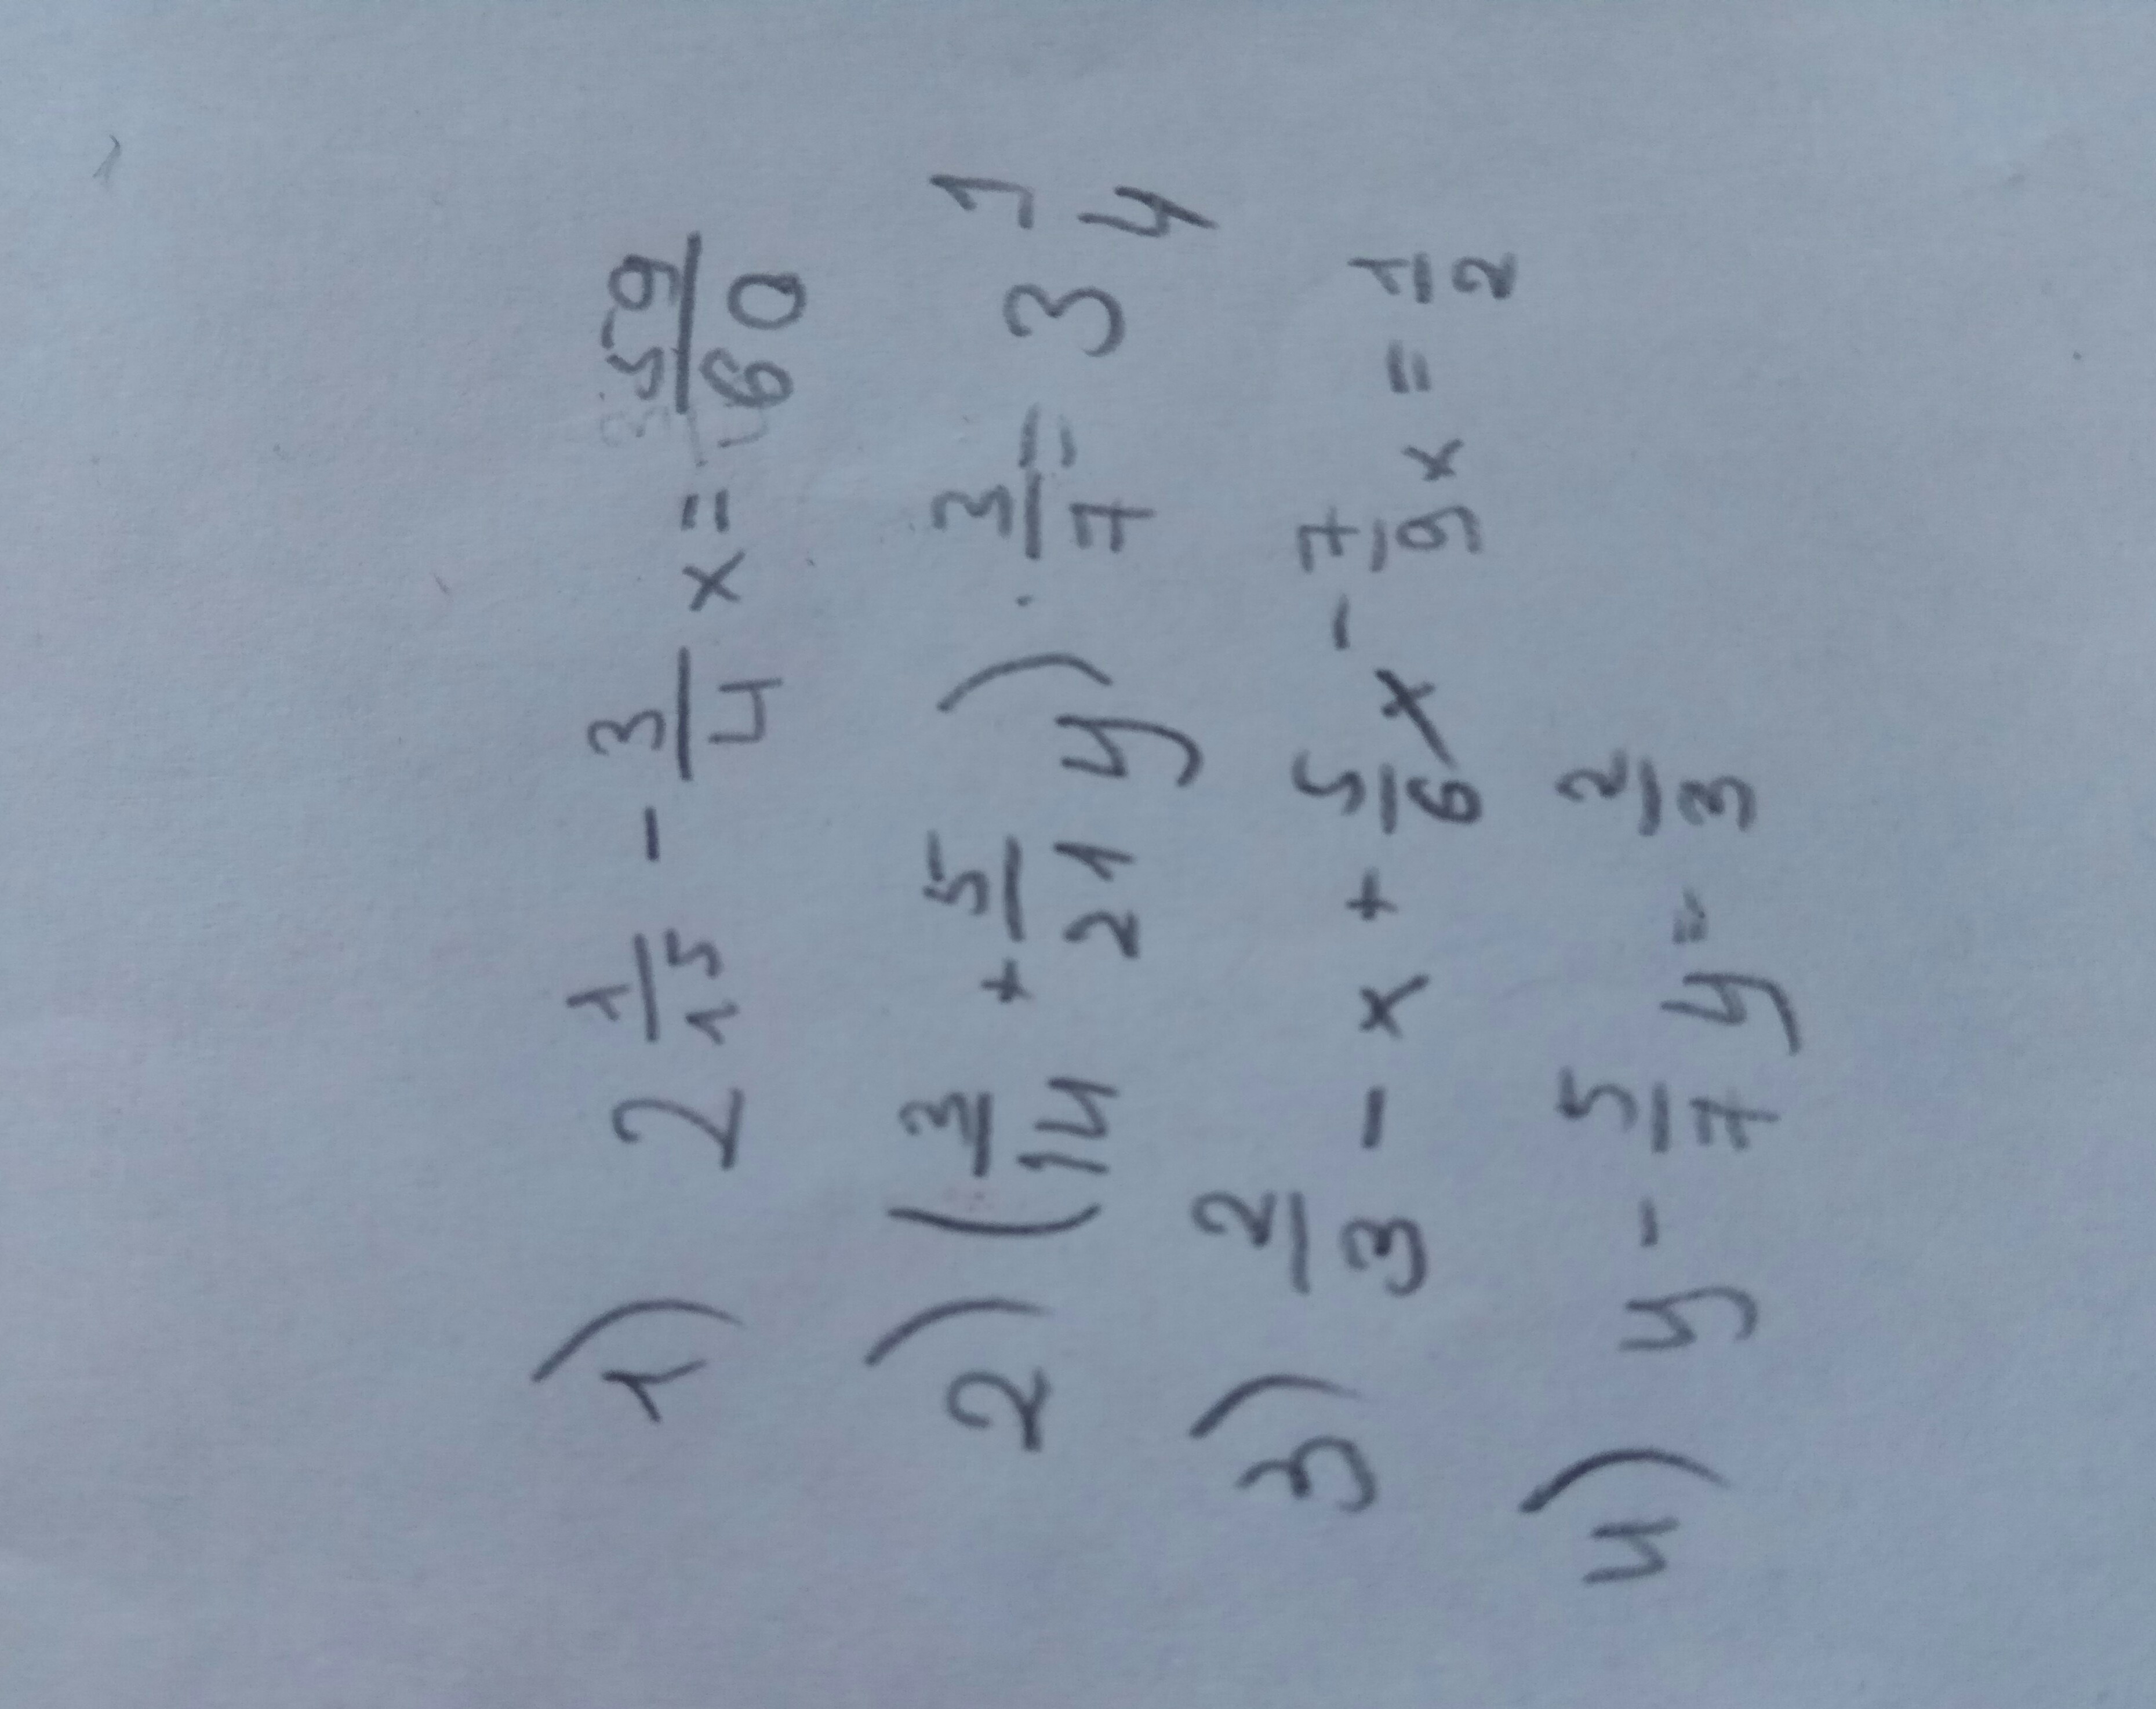 1) 2 1/15 - 3/4 x = 59/60
2) (3/14 + 5/21 y) · 3/7 = 3 1/4
3) 2/3 - x + 5/6 x - 7/9 x = 1/2
4) y - 5/7 y = 2/3